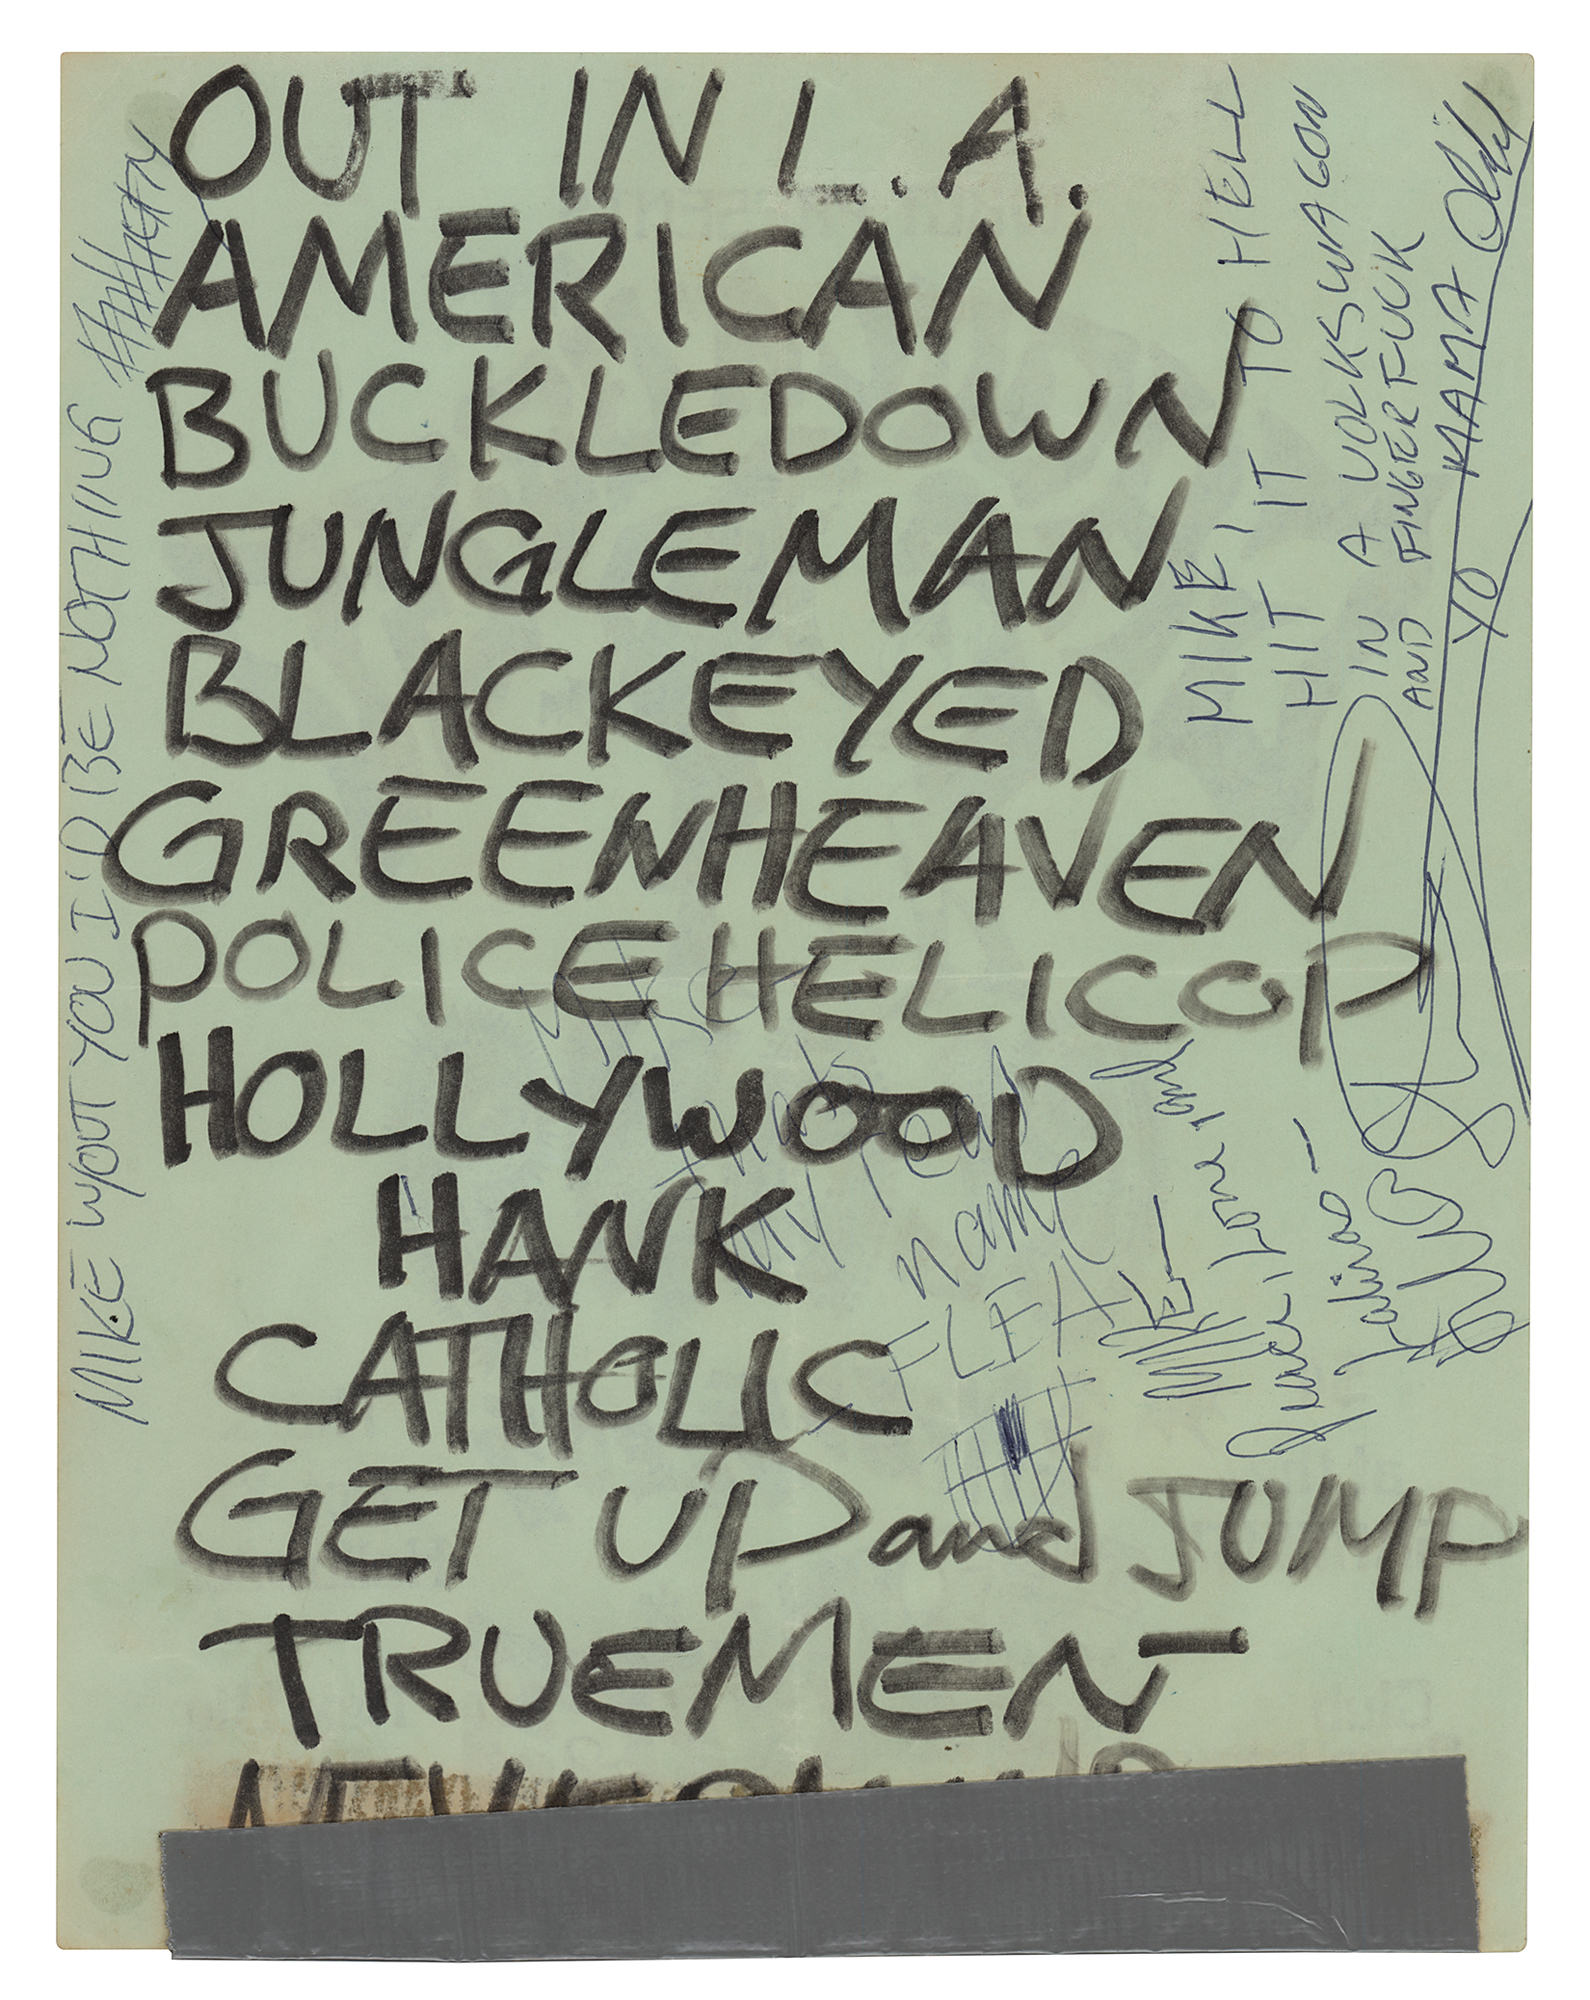 OUT IN L.A.
AMERICAN
BUCKLEDOWN
JUNGLEMAN
BLACKEYED
GREENHEAVEN
POLICE HELICOP
HOLLYWOOD
HANK
CATHOLIC
GET UP and JUMP
TRUEMEN
MIKE W/OUT YOU I'D BE NOTHING
MIKE, HIT IT TO HELL
IN A VOLKSWAGON
AND FINGERFUCK
YO MAMA
Mike
thanks
my real
name
FLEA
MIKE—
Peace, Love, and